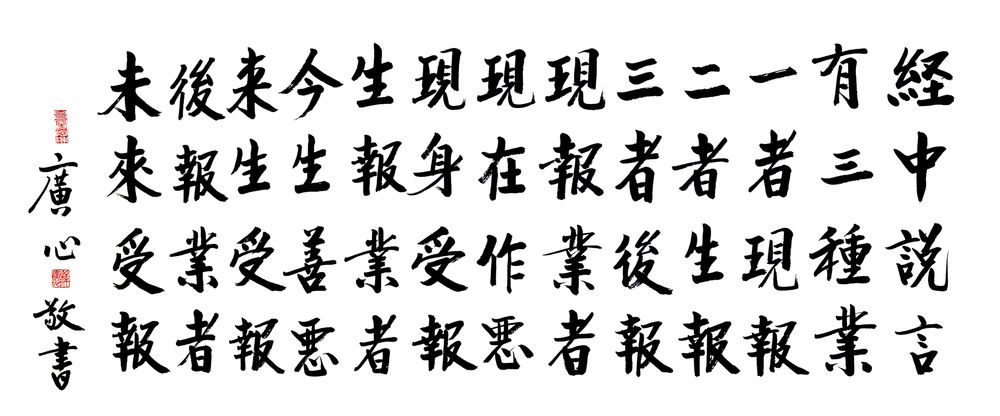 経中説言
有三種業
一者現報
二者生報
三者後報
現報業者
現在作悪
現身受報
生報業者
今生善悪
来生受報
後報業者
未來受報
廣心敬書